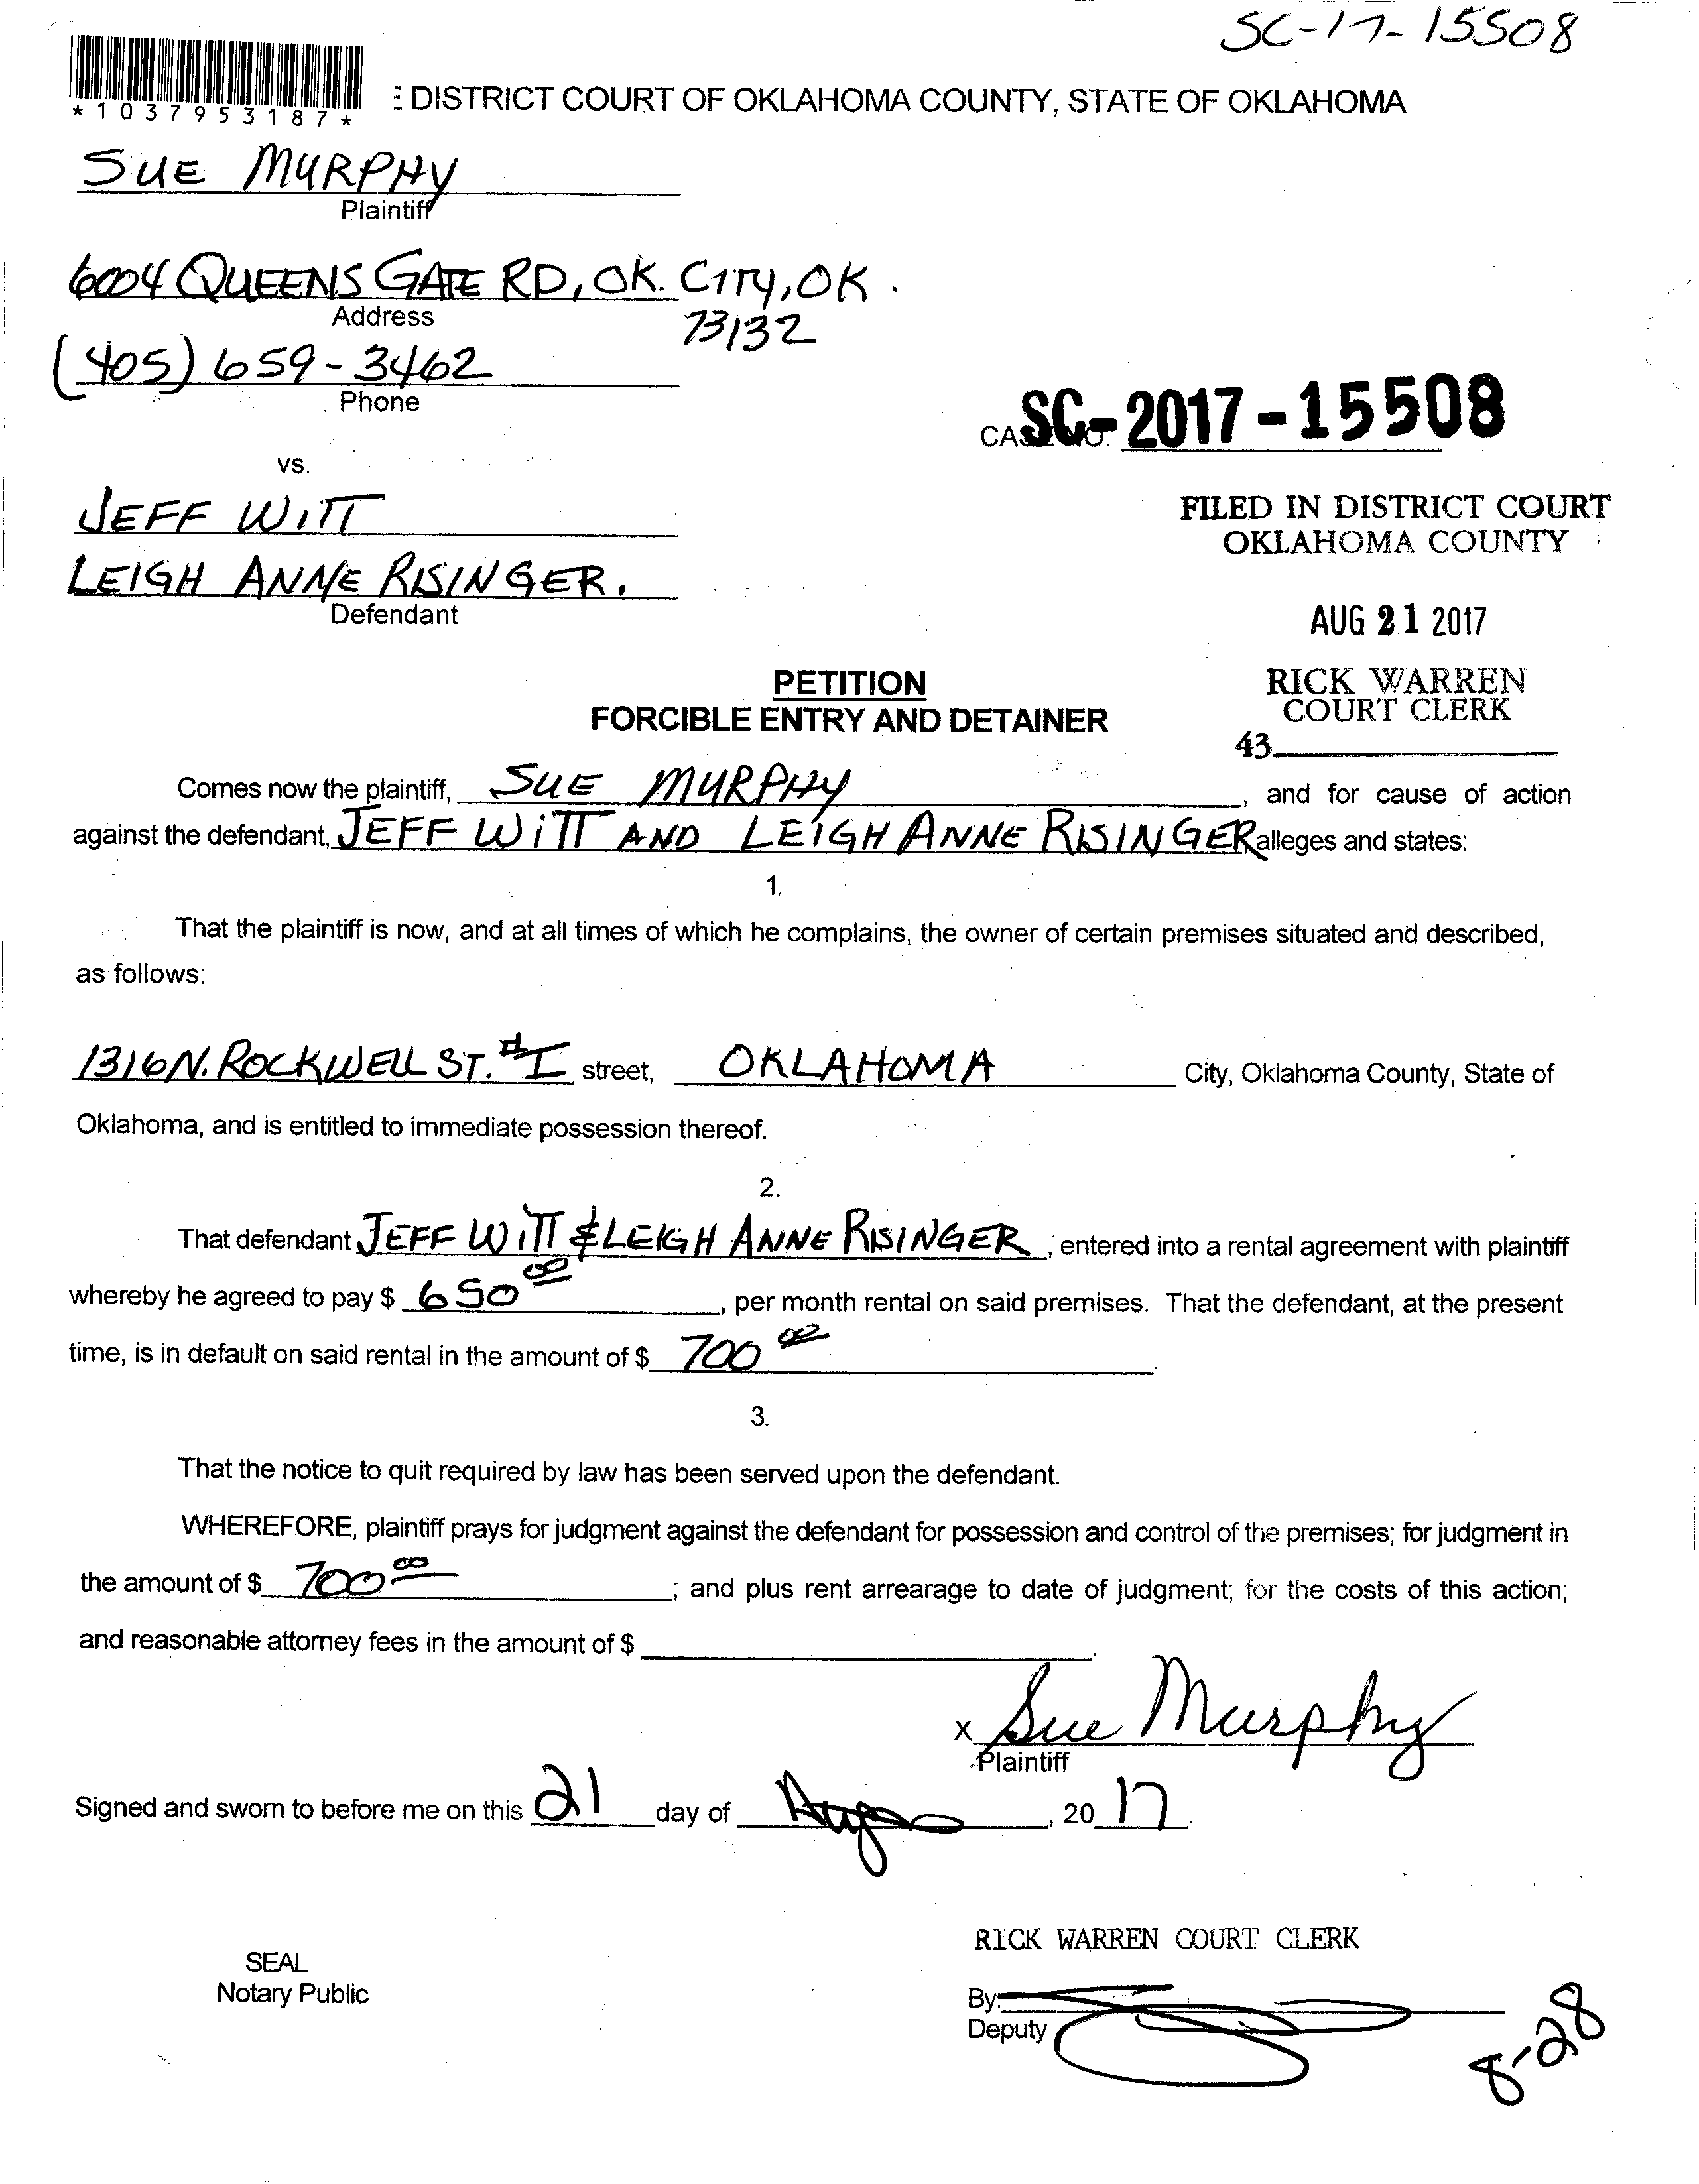 SC-17-15508
*1037953187*
E DISTRICT COURT OF OKLAHOMA COUNTY, STATE OF OKLAHOMA
SUE MURPHY
Plaintiff
6004 QUEENS GATE RD, OK. CITY, OK.
Address
73132
(405) 659-3462
Phone
CASE NO. SC-2017-15508
vs.
JEFF WITT
FILED IN DISTRICT COURT
OKLAHOMA COUNTY
LEIGH ANNE RISINGER.
Defendant
AUG 21 2017
PETITION
FORCIBLE ENTRY AND DETAINER
RICK WARREN
COURT CLERK
43
Comes now the plaintiff, SUE MURPHY, and for cause of action
against the defendant, JEFF WITT AND LEIGH ANNE RISINGER alleges and states:
1.
That the plaintiff is now, and at all times of which he complains, the owner of certain premises situated and described,
as follows:
1316 N. ROCKWELL ST. #I street, OKLAHOMA City, Oklahoma County, State of
Oklahoma, and is entitled to immediate possession thereof.
2.
That defendant JEFF WITT & LEIGH ANNE RISINGER, entered into a rental agreement with plaintiff
whereby he agreed to pay $ 650 00, per month rental on said premises. That the defendant, at the present
time, is in default on said rental in the amount of $ 700 00.
3.
That the notice to quit required by law has been served upon the defendant.
WHEREFORE, plaintiff prays for judgment against the defendant for possession and control of the premises; for judgment in
the amount of $ 700 00; and plus rent arrearage to date of judgment; for the costs of this action;
and reasonable attorney fees in the amount of $ .
x Sue Murphy
Plaintiff
Signed and sworn to before me on this 21 day of , 20 17.
RICK WARREN COURT CLERK
SEAL
Notary Public
By:
Deputy
8-28